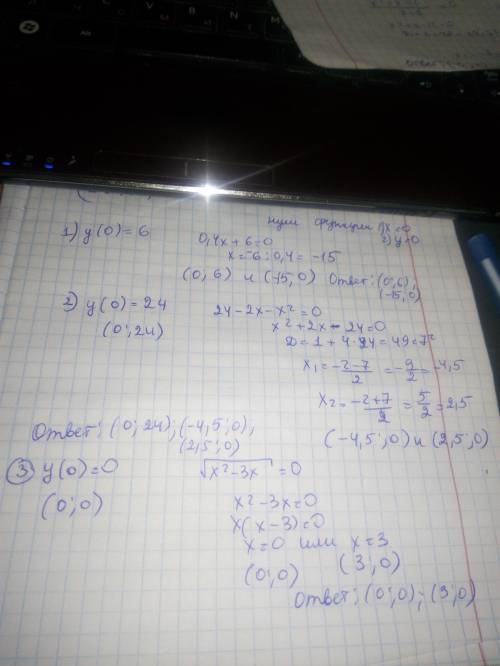 нули функции 1) x=0
2) y=0
1) y(0)=6
0,4x+6=0
x=-6:0,4=-15
(0,6) и (-15,0) Ответ: (0;6);
(-15;0)
2) y(0)=24
24-2x-x²=0
(0;24)
x²+2x-24=0
D=1+4·24=49=7²
x₁=(-2-7)/2=-9/2=-4,5
x₂=(-2+7)/2=5/2=2,5
Ответ: (0;24); (-4,5;0);
(2,5;0)
(-4,5;0) и (2,5;0)
3) y(0)=0
√(x²-3x)=0
(0;0)
x²-3x=0
x(x-3)=0
x=0 или x=3
(0;0) (3;0)
Ответ: (0;0); (3;0)